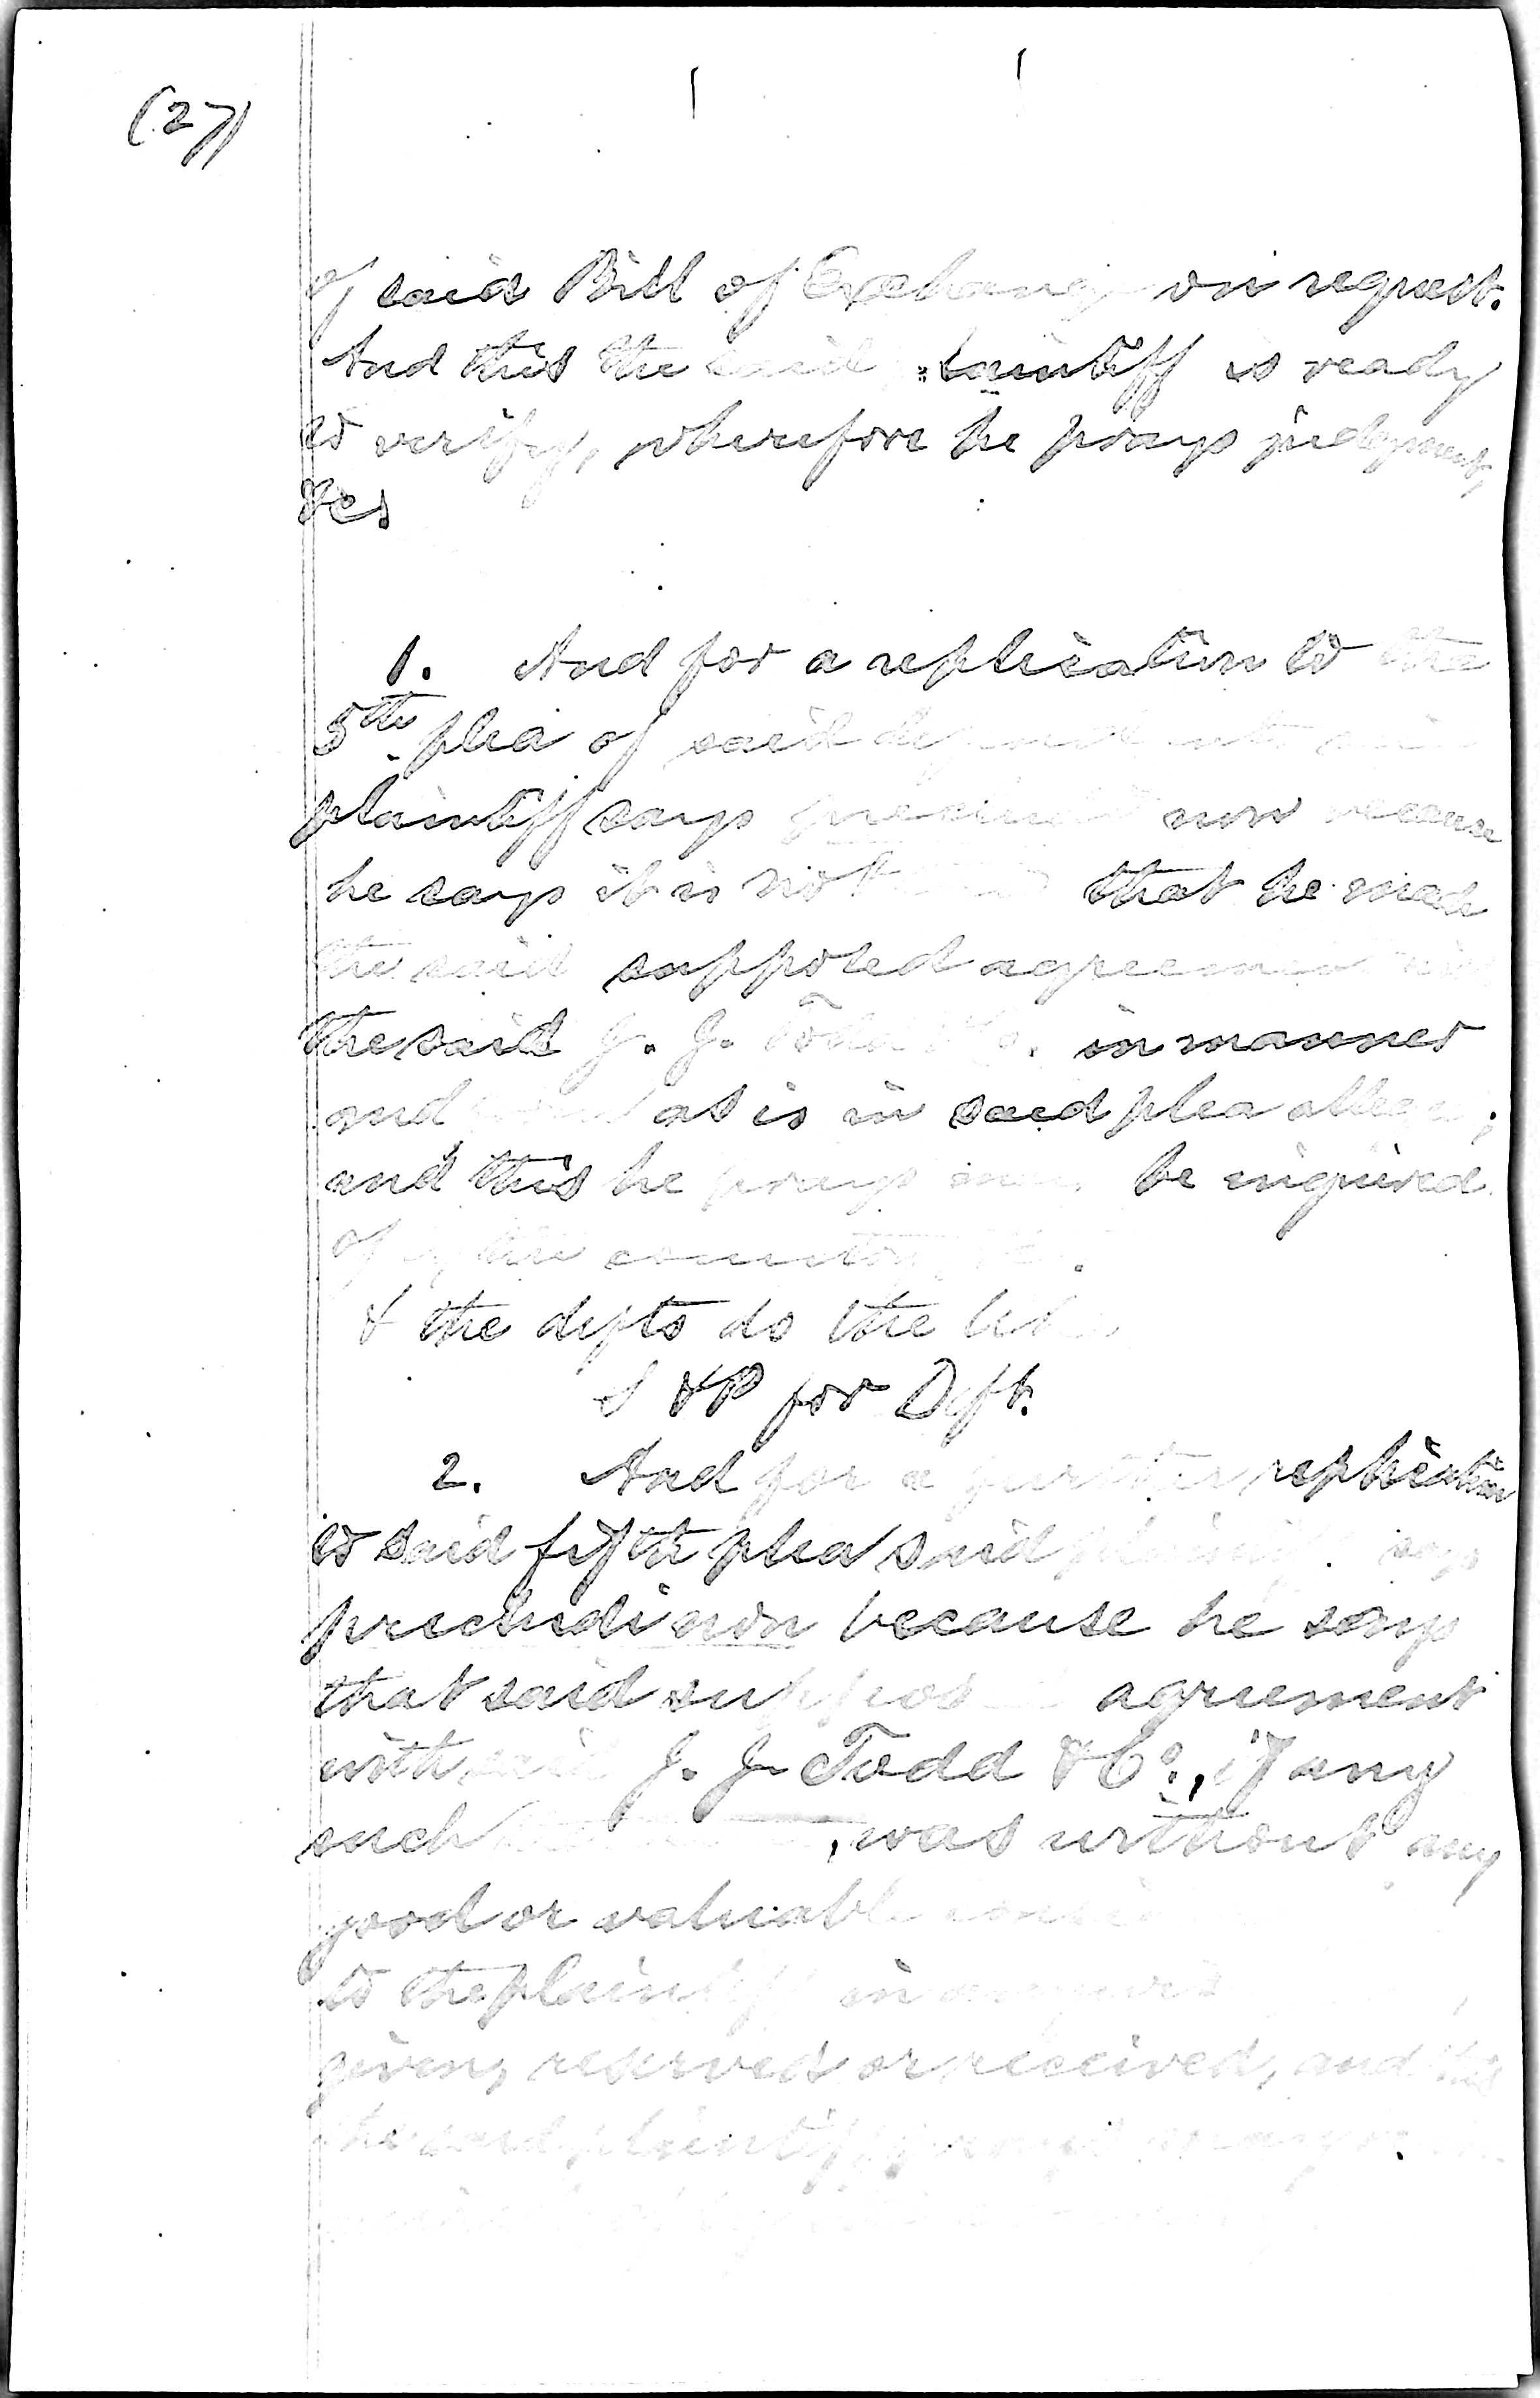 (27)
of said Bill of Exchange on request.
And this the said plaintiff is ready
to verify, wherefore he prays judgment,
&c.
1. And for a replication to the
5th plea of said defendants said
plaintiff says precludi non because
he says it is not that he made
the said supposed agreement with
the said J. J. Todd & Co. in manner
and form as is in said plea alleged;
and this he prays may be inquired
of by the country &c.
& the defts do the like
S & P for Deft.
2. And for a further replication
to said fifth plea said plaintiff says
precludi non because he says
that said supposed agreement
with said J. J. Todd & Co., if any
such , was without any
good or valuable
to the plaintiff in
given, reserved or received, and this
the said plaintiff prays may be